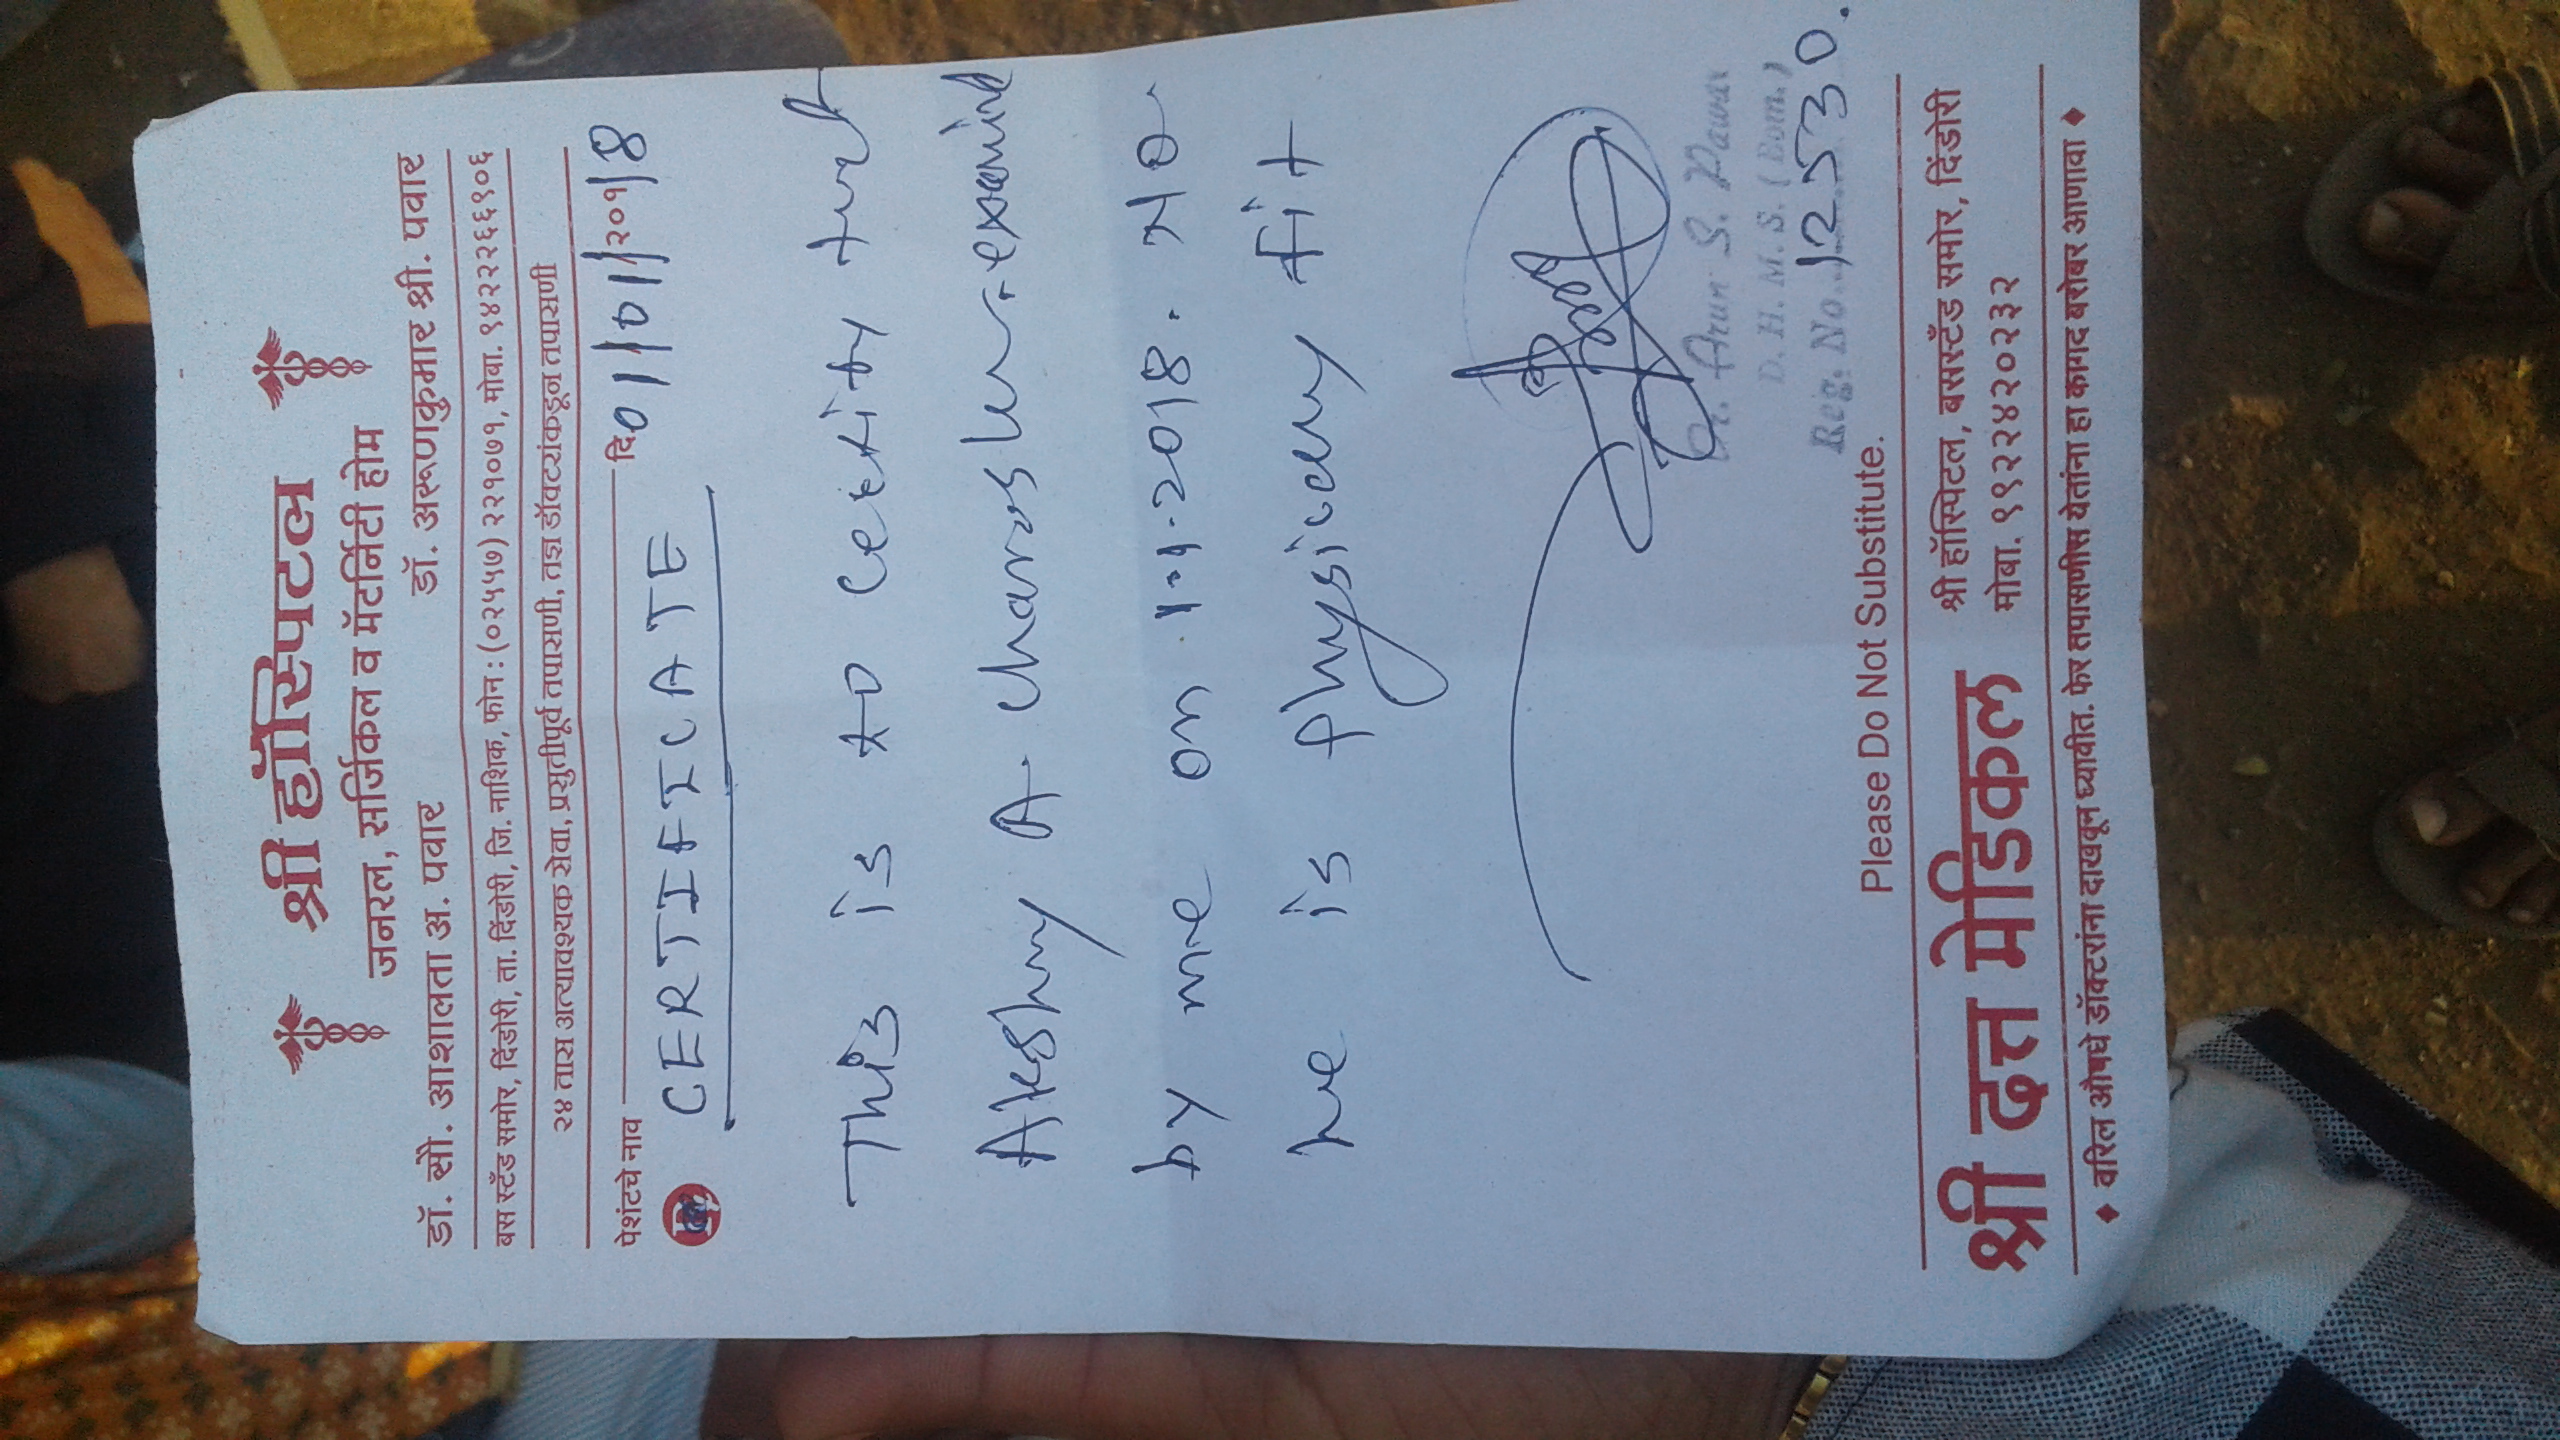 श्री हॉस्पिटल
जनरल, सर्जिकल व मॅटर्निटी होम
डॉ. सौ. आशालता अ. पवार डॉ. अरूणकुमार श्री. पवार
बस स्टॅंड समोर, दिंडोरी, ता. दिंडोरी, जि. नाशिक, फोन : (०२५५७) २२१०७१, मोबा. ९४२२२६६१०६
२४ तास अत्यावश्यक सेवा, प्रसुतीपूर्व तपासणी, तज्ञ डॉक्टरांकडून तपासणी
पेशंटचे नाव दि. 01/01/२०१8
CERTIFICATE
This is to certify that
Akshay A. examind
by me on 1.1.2018.
he is physicaly fit
Dr. Arun S. Pawar
D. H. M. S. (Bom.)
Reg. No. 12530.
Please Do Not Substitute.
श्री दत्त मेडिकल श्री हॉस्पिटल, बसस्टॅंड समोर, दिंडोरी
मोबा. ९९२२४२०२३२
♦ वरिल औषधे डॉक्टरांना दाखवून घ्यावीत. फेर तपासणीस येतांना हा कागद बरोबर आणावा ♦